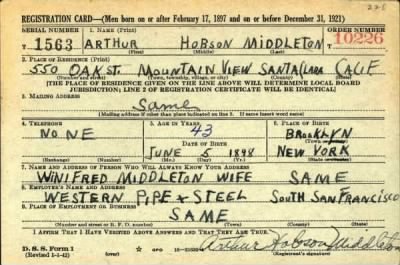 228
REGISTRATION CARD—(Men born on or after February 17, 1897 and on or before December 31, 1921)
SERIAL NUMBER 1. NAME (Print) ORDER NUMBER
T 1563 ARTHUR HOBSON MIDDLETON T 10226
(First) (Middle) (Last)
2. PLACE OF RESIDENCE (Print)
550 OAK ST. MOUNTAIN VIEW SANTA CLARA CALIF
(Number and street) (Town, township, village, or city) (County) (State)
[THE PLACE OF RESIDENCE GIVEN ON THE LINE ABOVE WILL DETERMINE LOCAL BOARD
JURISDICTION; LINE 2 OF REGISTRATION CERTIFICATE WILL BE IDENTICAL]
3. MAILING ADDRESS
Same
[Mailing address if other than place indicated on line 2. If same insert word same]
4. TELEPHONE 5. AGE IN YEARS 6. PLACE OF BIRTH
NONE 43 BROOKLYN
DATE OF BIRTH (Town or county)
JUNE 5 1898 NEW YORK
(Exchange) (Number) (Mo.) (Day) (Yr.) (State or country)
7. NAME AND ADDRESS OF PERSON WHO WILL ALWAYS KNOW YOUR ADDRESS
WINIFRED MIDDLETON WIFE SAME
8. EMPLOYER'S NAME AND ADDRESS
WESTERN PIPE & STEEL SOUTH SAN FRANCISCO
9. PLACE OF EMPLOYMENT OR BUSINESS
SAME
(Number and street or R. F. D. number) (Town) (County) (State)
I AFFIRM THAT I HAVE VERIFIED ABOVE ANSWERS AND THAT THEY ARE TRUE.
D. S. S. Form 1 Arthur Hobson Middleton
(Revised 1-1-42) (over) (Registrant's signature)